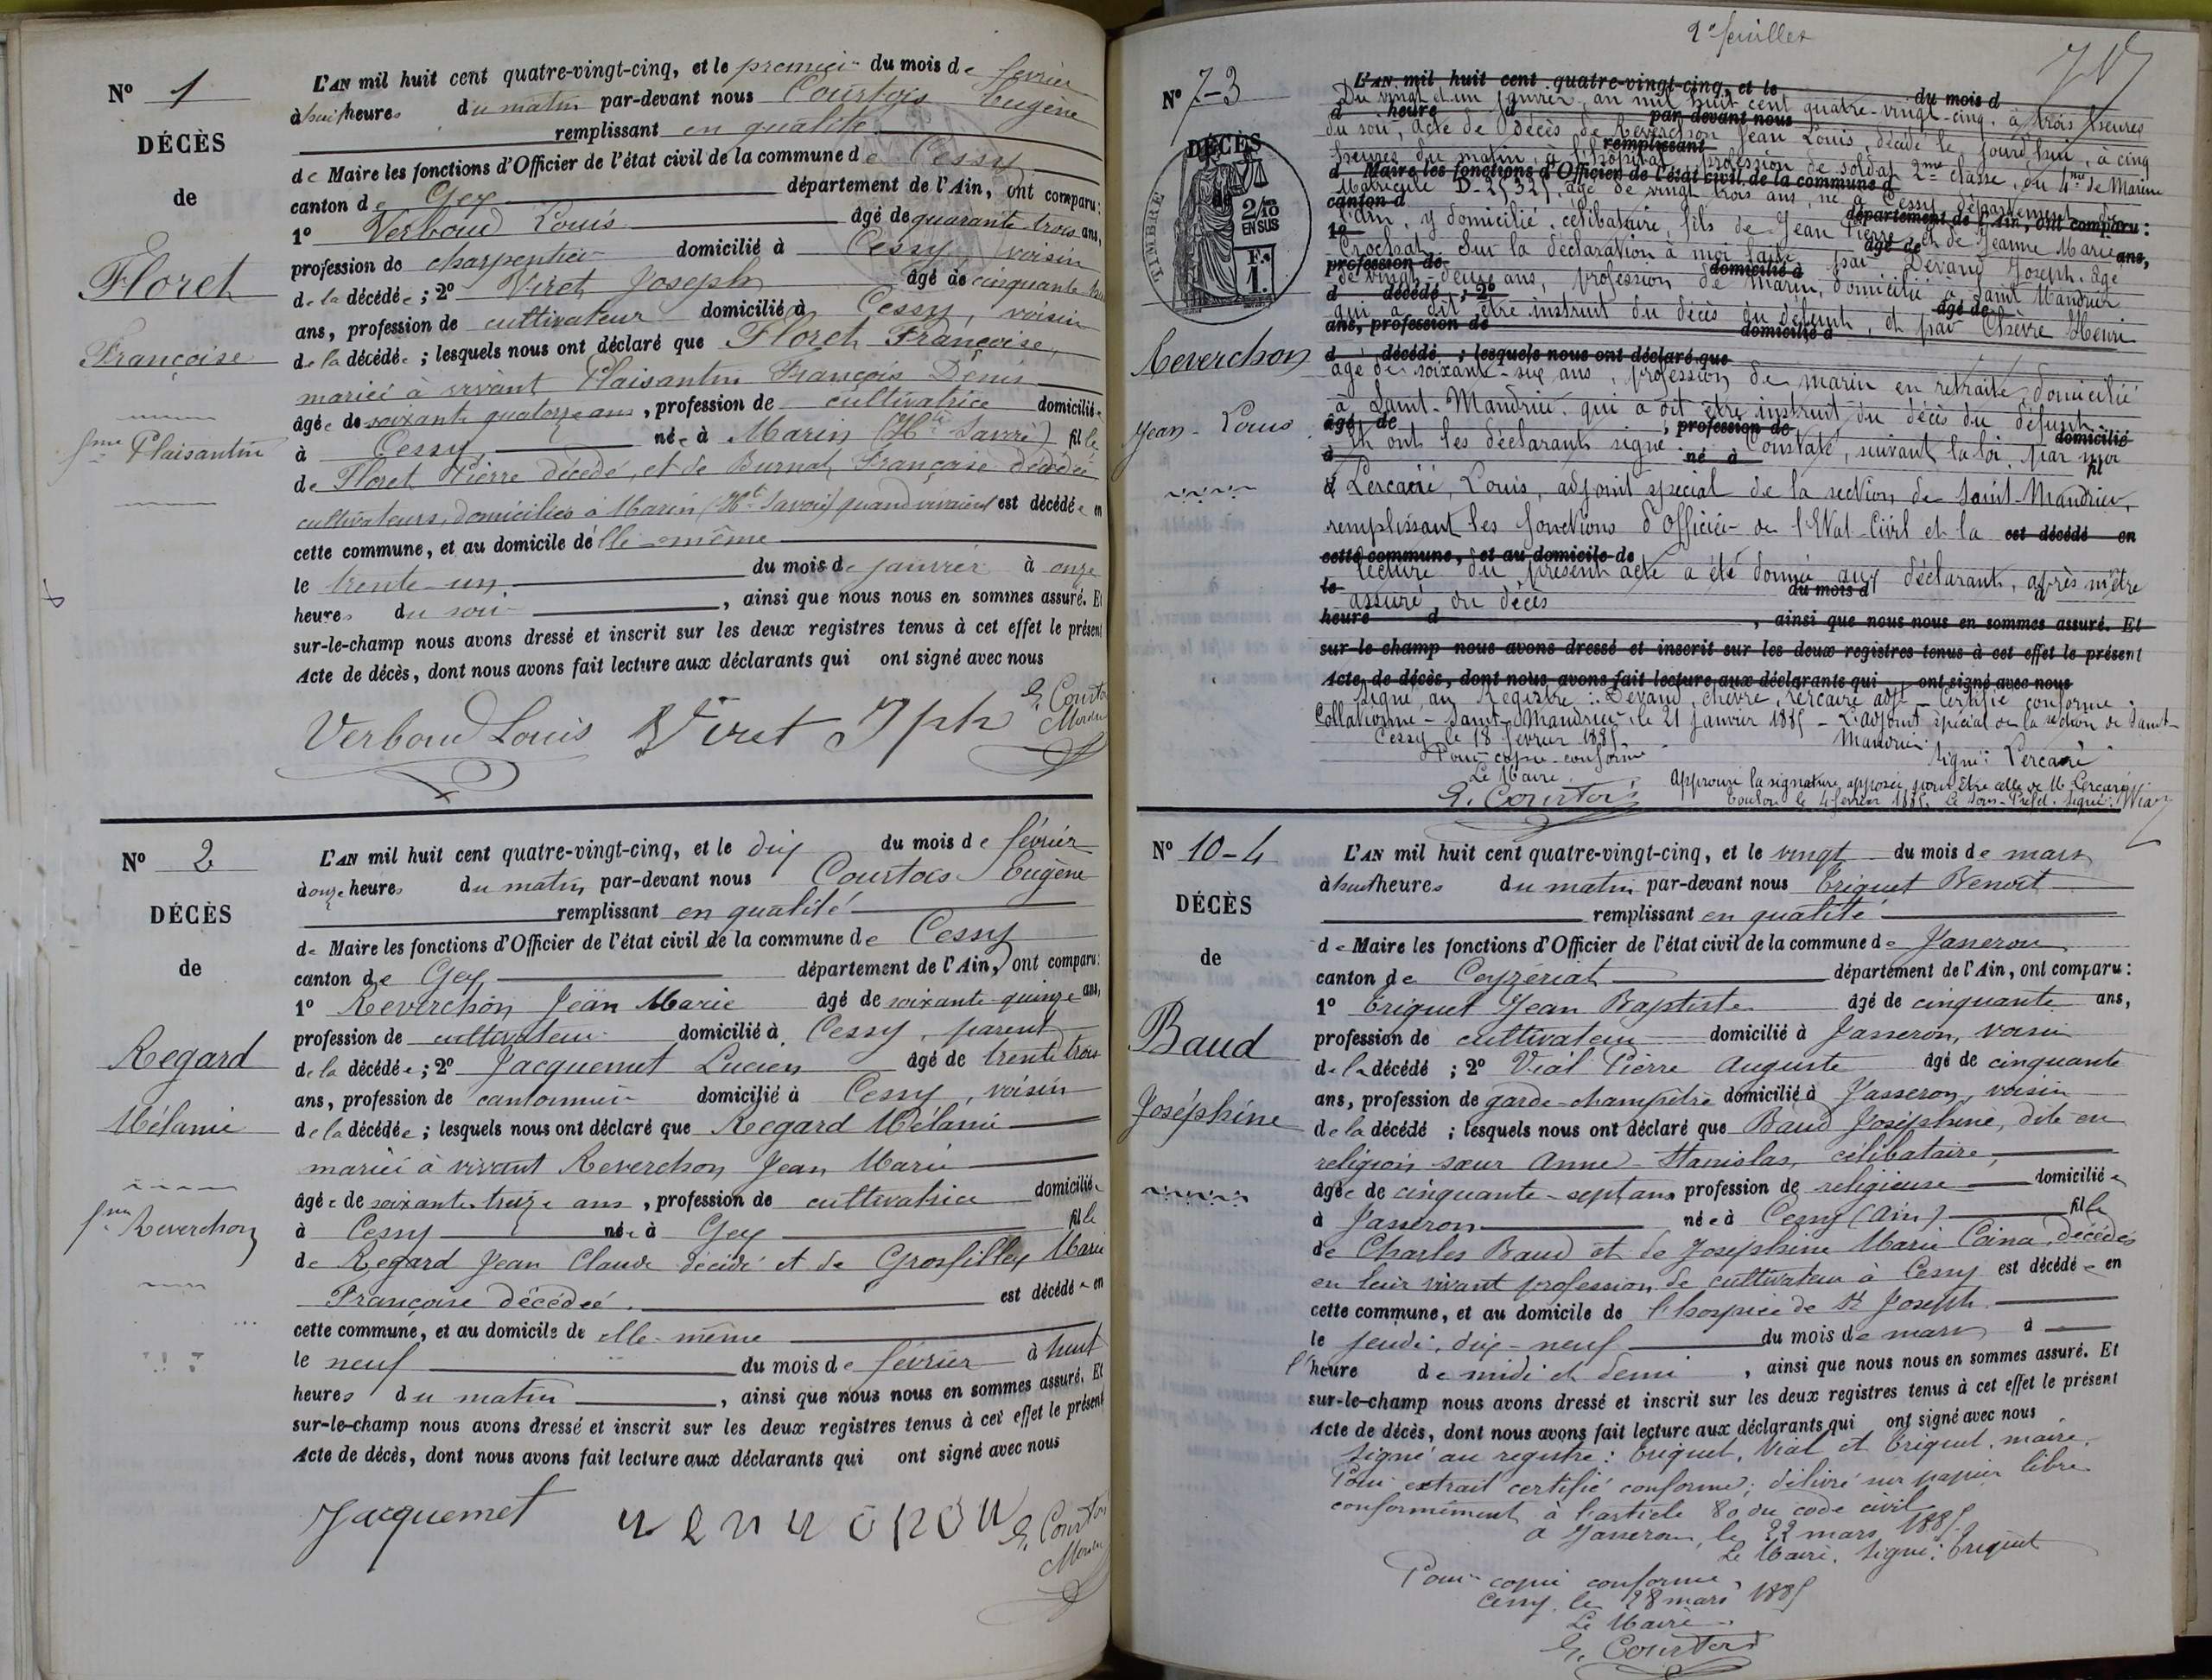 Nº 1
DÉCÈS
de
Floret
Françoise
fme Plaisantin
L'AN mil huit cent quatre-vingt-cinq, et le premier du mois de février
à huit heures du matin par-devant nous Courtois Eugène
remplissant en qualité
de Maire les fonctions d'Officier de l'état civil de la commune de Cessy
canton de Gex département de l'Ain, ont comparu :
1º Verboud Louis âgé de quarante-trois ans,
profession de charpentier domicilié à Cessy voisin
de la décédée ; 2º Viret Joseph âgé de cinquante
ans, profession de cultivateur domicilié à Cessy, voisin
de la décédée ; lesquels nous ont déclaré que Floret Françoise,
mariée à vivant Plaisantin François Denis
âgée de soixante quatorze ans, profession de cultivatrice domiciliée
à Cessy, née à Marin (Hte Savoie) fille
de Floret Pierre décédé, et de Burnat Françoise décédée
cultivateurs, domiciliés à Marin (Hte Savoie) quand vivaient est décédée en
cette commune, et au domicile d'elle-même
le trente-un du mois de janvier à onze
heures du soir, ainsi que nous nous en sommes assuré. Et
sur-le-champ nous avons dressé et inscrit sur les deux registres tenus à cet effet le présent
Acte de décès, dont nous avons fait lecture aux déclarants qui ont signé avec nous
Verboud Louis Viret Jph E. Courtois
Nº 2
DÉCÈS
de
Regard
Mélanie
fme Reverchon
L'AN mil huit cent quatre-vingt-cinq, et le dix du mois de février
à onze heures du matin par-devant nous Courtois Eugène
remplissant en qualité
de Maire les fonctions d'Officier de l'état civil de la commune de Cessy
canton de Gex département de l'Ain, ont comparu :
1º Reverchon Jean Marie âgé de soixante-quinze ans,
profession de cultivateur domicilié à Cessy, parent
de la décédée ; 2º Jacquemet Lucien âgé de trente trois
ans, profession de cantonnier domicilié à Cessy, voisin
de la décédée ; lesquels nous ont déclaré que Regard Mélanie
mariée à vivant Reverchon Jean Marie
âgée de soixante-treize ans, profession de cultivatrice domiciliée
à Cessy née à Gex fille
de Regard Jean Claude décédé et de Grosfilley Marie
Françoise décédée. est décédée en
cette commune, et au domicile de elle-même
le neuf du mois de février à huit
heures du matin, ainsi que nous nous en sommes assuré. Et
sur-le-champ nous avons dressé et inscrit sur les deux registres tenus à cet effet le présent
Acte de décès, dont nous avons fait lecture aux déclarants qui ont signé avec nous
Jacquemet E. Courtois
2e feuillet
Nº 7-3
DÉCÈS
TIMBRE
2/10
EN SUS
F.
1.
Reverchon
Jean-Louis
L'AN mil huit cent quatre-vingt-cinq, et le du mois d
Du vingt et un janvier, an mil huit cent quatre-vingt-cinq, à trois heures
d heure d par-devant nous
du soir, acte de Décès de Reverchon Jean Louis, décédé le jourd'hui, à cinq
remplissant
heures du matin, à l'hôpital, profession de soldat 2me classe, du 4me de Marine
d Maire les fonctions d'Officier de l'état civil de la commune d
Matricule D-25325, âgé de vingt trois ans, né à Cessy département de
canton d département de l'Ain, ont comparu :
l'Ain, y domicilié, célibataire, fils de Jean Pierre et de Jeanne Marie
1º âgé de ans,
Crochat. Sur la déclaration à moi faite par Devaud Joseph, âgé
profession de domicilié à
de vingt-deux ans, profession de marin, domicilié à Saint Mandrier
d décédé ; 2º âgé de
qui a dit être instruit du décès du défunt, et par Chèvre Henri
ans, profession de domicilié à
d décédé ; lesquels nous ont déclaré que
âgé de soixante-six ans, profession de marin en retraite, domicilié
à Saint-Mandrier. qui a dit être instruit du décès du défunt.
âgé de , profession de domicilié
Et ont les déclarants signé. Constaté, suivant la loi, par moi
à né à fil
d Lercaré, Louis, adjoint spécial de la section de Saint-Mandrier,
remplissant les fonctions d'Officier de l'Etat-Civil et la est décédé en
cette commune, et au domicile de
lecture du présent acte a été donnée aux déclarant, après m'être
le du mois d
assuré du décès
heure d , ainsi que nous nous en sommes assuré. Et
sur-le-champ nous avons dressé et inscrit sur les deux registres tenus à cet effet le présent
Acte de décès, dont nous avons fait lecture aux déclarants qui ont signé avec nous
Signé au Registre : Devaud, Chèvre, Lercaré adjt - Certifié conforme.
Collationné - Saint-Mandrier, le 21 Janvier 1885 - L'adjoint spécial de la section de Saint-
Mandrier. Signé : Lercaré
Cessy, le 18 février 1885.
Pour copie conforme
Le Maire.
E. Courtois
Approuvé la signature apposée pour être celle de M. Lercaré
Toulon le 4 février 1885. Le Sous-Préfet. Signé :
Nº 10-4
DÉCÈS
de
Baud
Joséphine
L'AN mil huit cent quatre-vingt-cinq, et le vingt du mois de mars
à huit heures du matin par-devant nous Triquet Benoît
remplissant en qualité
de Maire les fonctions d'Officier de l'état civil de la commune de Jasseron
canton de Ceyzériat département de l'Ain, ont comparu :
1º Triquet Jean Baptiste âgé de cinquante ans,
profession de cultivateur domicilié à Jasseron, voisin
de la décédé ; 2º Vial Pierre Auguste âgé de cinquante
ans, profession de garde-champêtre domicilié à Jasseron, voisin
de la décédé ; lesquels nous ont déclaré que Baud Joséphine, dite en
religion sœur Anne-Stanislas, célibataire,
âgée de cinquante-sept ans profession de religieuse domiciliée
à Jasseron née à Cessy (Ain) fille
de Charles Baud et de Joséphine Marie Coina, décédés
en leur vivant profession de cultivateur à Cessy est décédée en
cette commune, et au domicile de l'hospice de St Joseph
le jeudi, dix-neuf du mois de mars à
l'heure de midi et demi, ainsi que nous nous en sommes assuré. Et
sur-le-champ nous avons dressé et inscrit sur les deux registres tenus à cet effet le présent
Acte de décès, dont nous avons fait lecture aux déclarants qui ont signé avec nous
Signé au registre : Triquet, Vial et Triquet, maire.
Pour extrait certifié conforme ; délivré sur papier libre
conformément à l'article 80 du code civil
a Jasseron, le 22 mars 1885
Le Maire. Signé : Triquet
Pour copie conforme,
Cessy, le 28 mars 1885
Le Maire
E. Courtois